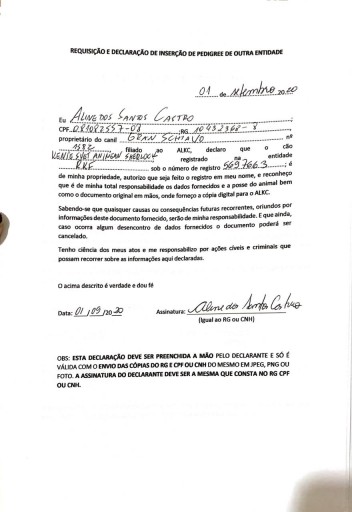 REQUISIÇÃO E DECLARAÇÃO DE INSERÇÃO DE PEDIGREE DE OUTRA ENTIDADE
01 de setembro 2020
Eu ALINE DOS SANTOS CASTRO
CPF ;RG
proprietário do canil GRAN SCHIAVO nº
1532, filiado ao ALKC, declaro que o cão
SHERLOCK registrado na entidade
sob o número de registro 569766.3 ; é
de minha propriedade, autorizo que seja feito o registro em meu nome, e reconheço
que é de minha total responsabilidade os dados fornecidos e a posse do animal bem
como o documento original em mãos, onde forneço a cópia digital para o ALKC.
Sabendo-se que quaisquer causas ou consequências futuras recorrentes, oriundos por
informações deste documento fornecido, serão de minha responsabilidade. E que ainda,
caso ocorra algum desencontro de dados fornecidos o documento poderá ser
cancelado.
Tenho ciência dos meus atos e me responsabilizo por ações cíveis e criminais que
possam recorrer sobre as informações aqui declaradas.
O acima descrito é verdade e dou fé
Data: 01/09/2020 Assinatura: Aline dos Santos Castro
(Igual ao RG ou CNH)
OBS: ESTA DECLARAÇÃO DEVE SER PREENCHIDA A MÃO PELO DECLARANTE E SÓ É
VÁLIDA COM O ENVIO DAS CÓPIAS DO RG E CPF OU CNH DO MESMO EM JPEG, PNG OU
FOTO. A ASSINATURA DO DECLARANTE DEVE SER A MESMA QUE CONSTA NO RG CPF
OU CNH.